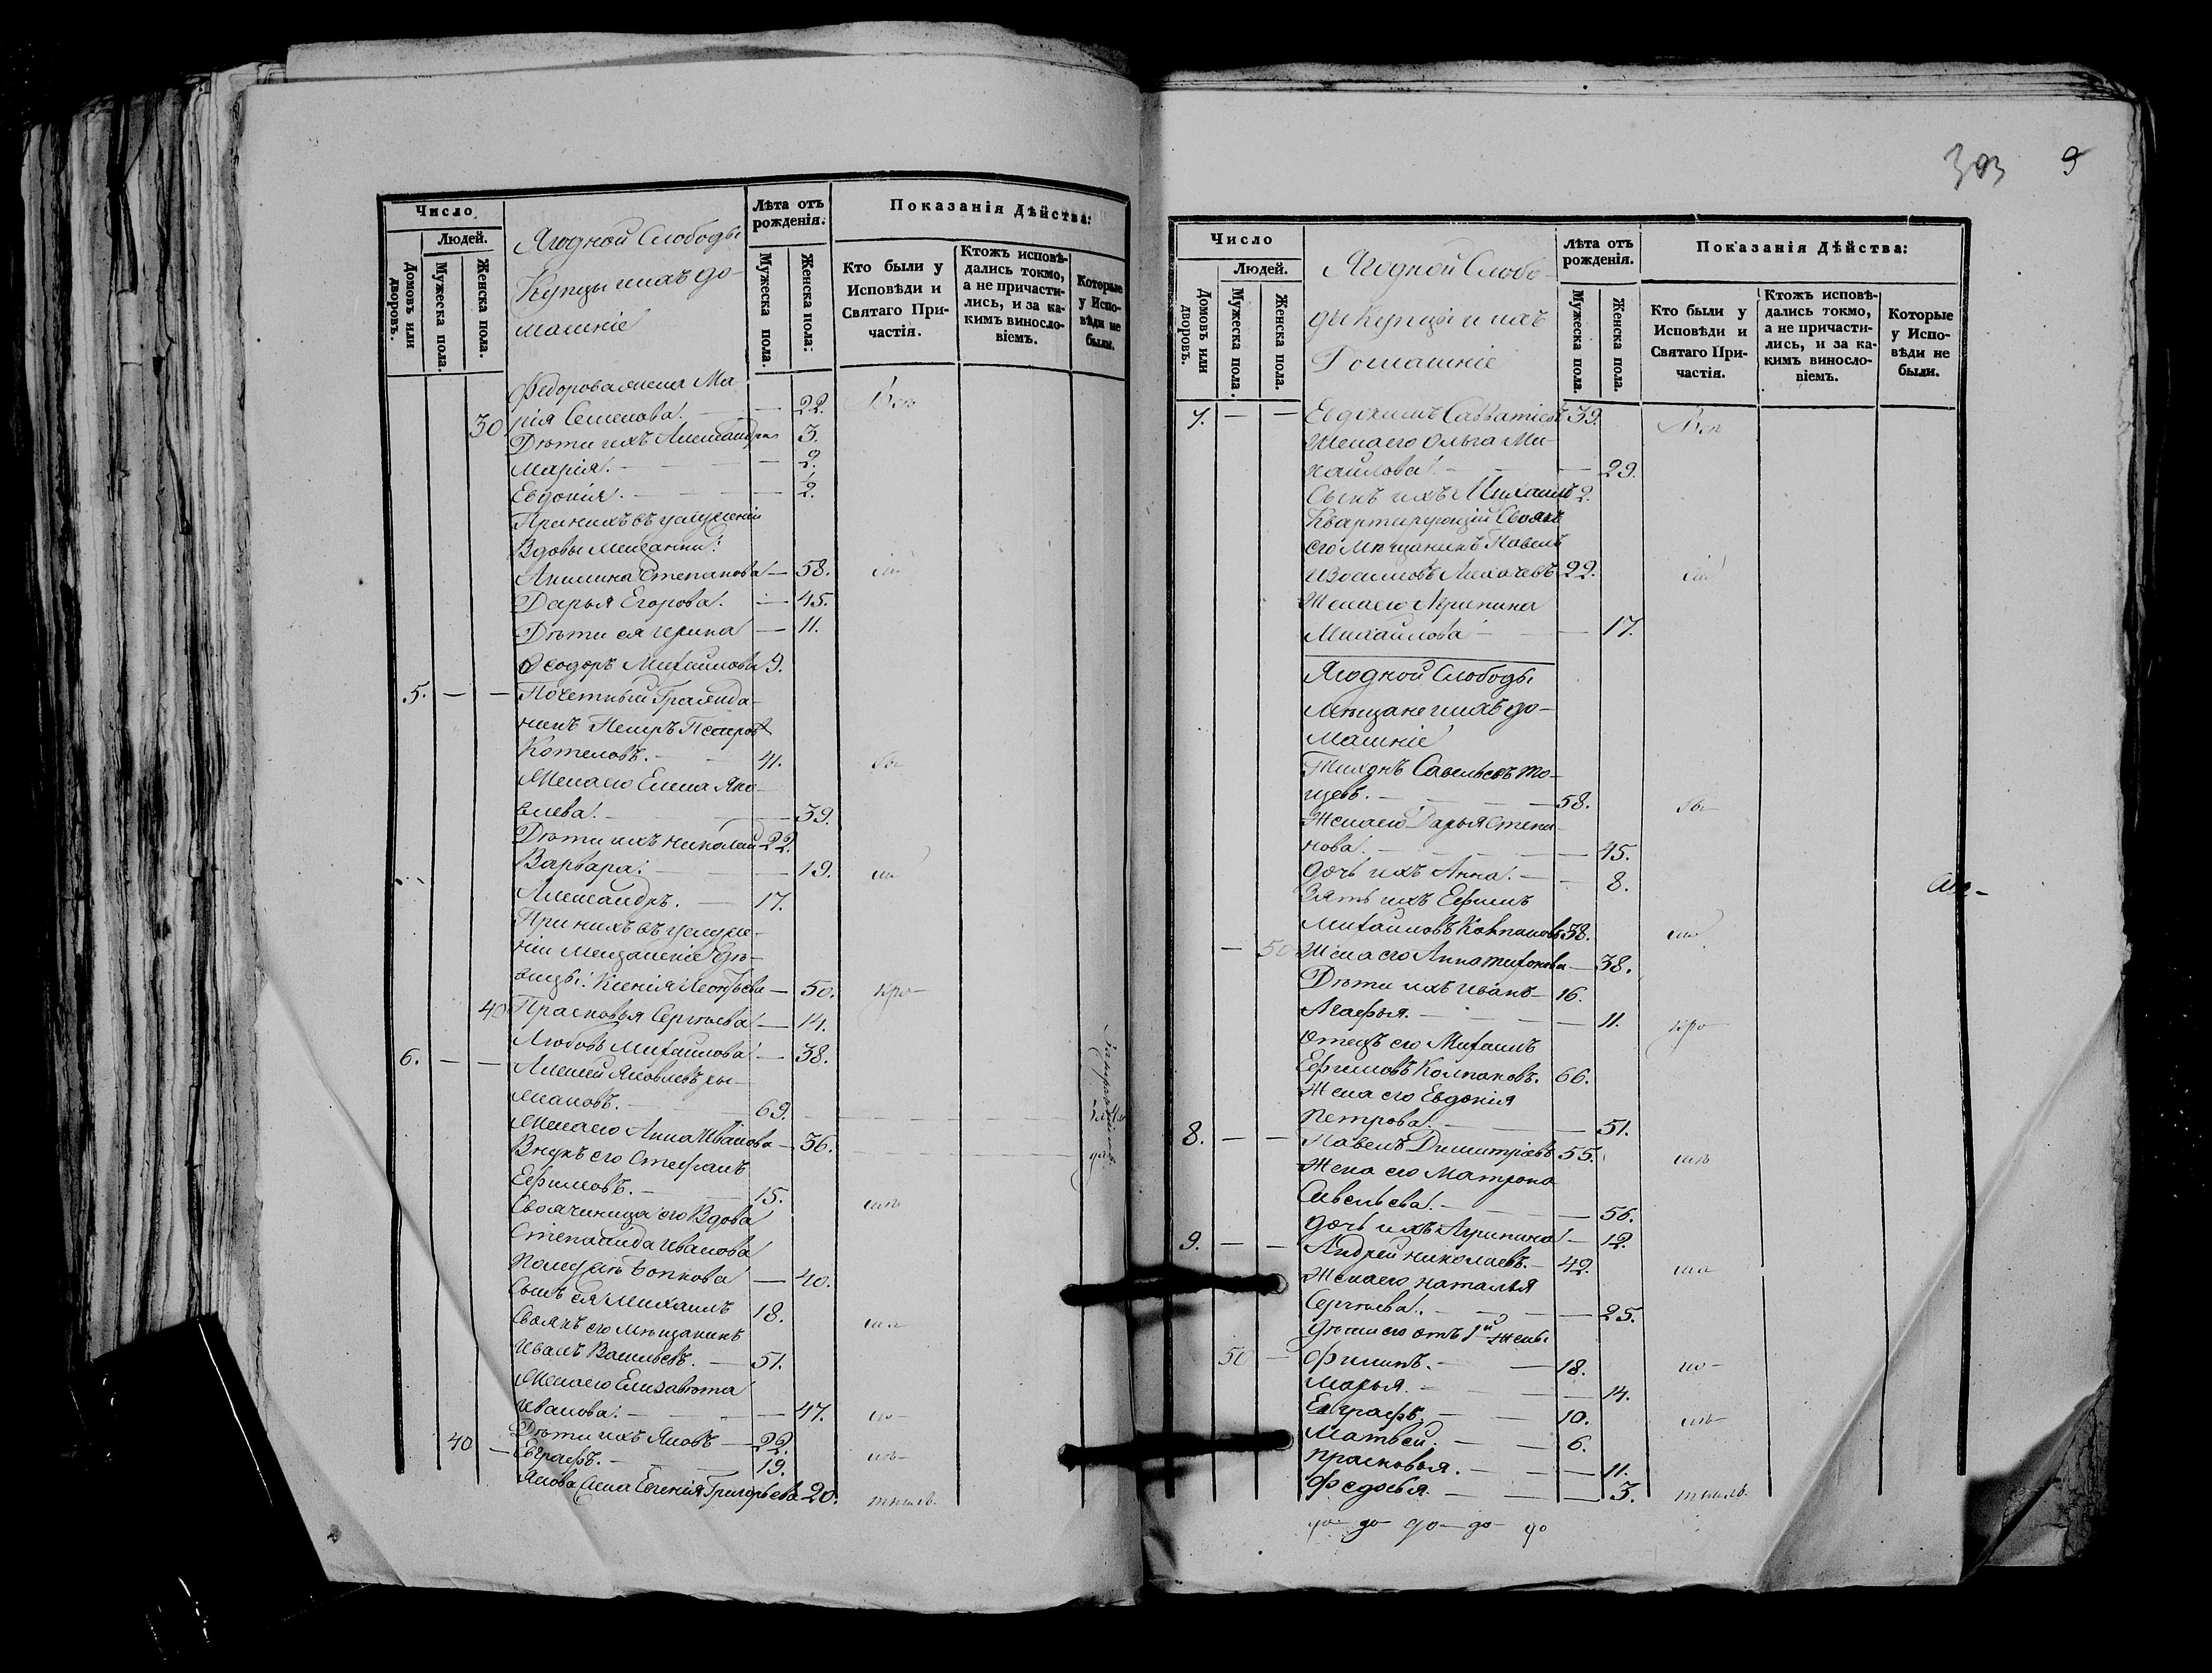 Число
Людей.
Домовъ или дворовъ.
Мужеска пола.
Женска пола.
Ягодной Слободы
Купцы и ихъ до-
машніе
Лѣта отъ рожденія.
Мужеска пола.
Женска пола:
Показанія Дѣйства:
Кто были у Исповѣди и Святаго Причастія.
Ктожъ исповѣ-
дались токмо,
а не причасти-
лись, и за ка-
кимъ виносло-
віемъ.
Которые
у Испо-
вѣди не
были.
Федорова жена Ма-
30 рія Семенова. — 22.
Дѣти ихъ Александра 3.
Марія. — 2.
Евдокія. — 1/2.
При нихъ въ услуженіи
Вдовы Мещанки:
Акилина Степанова — 58.
Дарья Егорова. — 45.
Дѣти ея Ирина — 11.
Ѳеодоръ Михайловъ 9.
5. — — Почетный Гражда-
нинъ Петръ Петровъ
Котеловъ. — 41. бы-
Жена его Елена Яко-
влева. — 39.
Дѣти ихъ Николай 22.
Варвара. — 19.
Александръ. — 17.
При нихъ въ услуже-
ніи Мещанскіе дѣ-
вицы: Ксенія Леонтьева — 50.
40 Прасковья Сергѣева — 14.
Любовь Михайлова — 38.
6. — — Алексей Яковлевъ
69.
Жена его Анна Иванова — 56.
Внукъ его Стефанъ
Ефимовъ. — 15.
Своячиница его Вдова
Степанида Иванова
— 40.
Сынъ ея Михаилъ 18.
Своякъ его Мѣщанинъ
Иванъ Васильевъ. — 51.
Жена его Елизавета
Иванова. — 47.
Дѣти ихъ Яковъ — 22.
40 — Евграфъ. — 19.
Якова жена Евгенія Григорьева — 20.
303 9
Число
Людей.
Домовъ или дворовъ.
Мужеска пола
Женска пола.
Ягодной Слобо-
ды Купцы и ихъ
Домашніе
Лѣта отъ рожденія.
Мужеска пола.
Женска пола.
Показанія Дѣйства:
Кто были у Исповѣди и Святаго Причастія.
Ктожъ исповѣ-
дались токмо,
а не причасти-
лись, и за ка-
кимъ виносло-
віемъ.
Которые
у Испо-
вѣди не
были.
7. — — Евдокимъ Савватіевъ 39.
Жена его Ольга Ми-
хайлова. — 29.
Сынъ ихъ Михаилъ 2.
Квартирующій Своякъ
его Мѣщанинъ Павелъ
22.
Жена его Агрипина
Михайлова — 17.
Ягодной Слободы
Мѣщане и ихъ до-
машніе
Тихонъ Савельевъ То-
щевъ. — 58. бы-
Жена его Дарья Степа-
нова. — 45.
Дочь ихъ Анна. — 8.
Зять ихъ Ефимъ
Михайловъ Колпаковъ 38.
— 50 Жена его Анна Тихонова — 38.
Дѣти ихъ Иванъ — 16.
Агафья. — 11.
Отецъ его Михаилъ
Ефимовъ Колпаковъ. 66.
Жена его Евдокія
Петрова. — 51.
8. — — Павелъ Димитріевъ 55.
Жена его Матрона
Савельева. — 56.
Дочь ихъ Агрипина — 12.
9. — — Андрей Николаевъ. — 42.
Жена его Наталья
Сергѣева. — 25.
Дѣти его отъ 1й жены
50 — Филипъ. — 18.
Марья. — 14.
Евграфъ. — 10.
Матвей. — 6.
Прасковья. — 11.
Федосья. — 3.